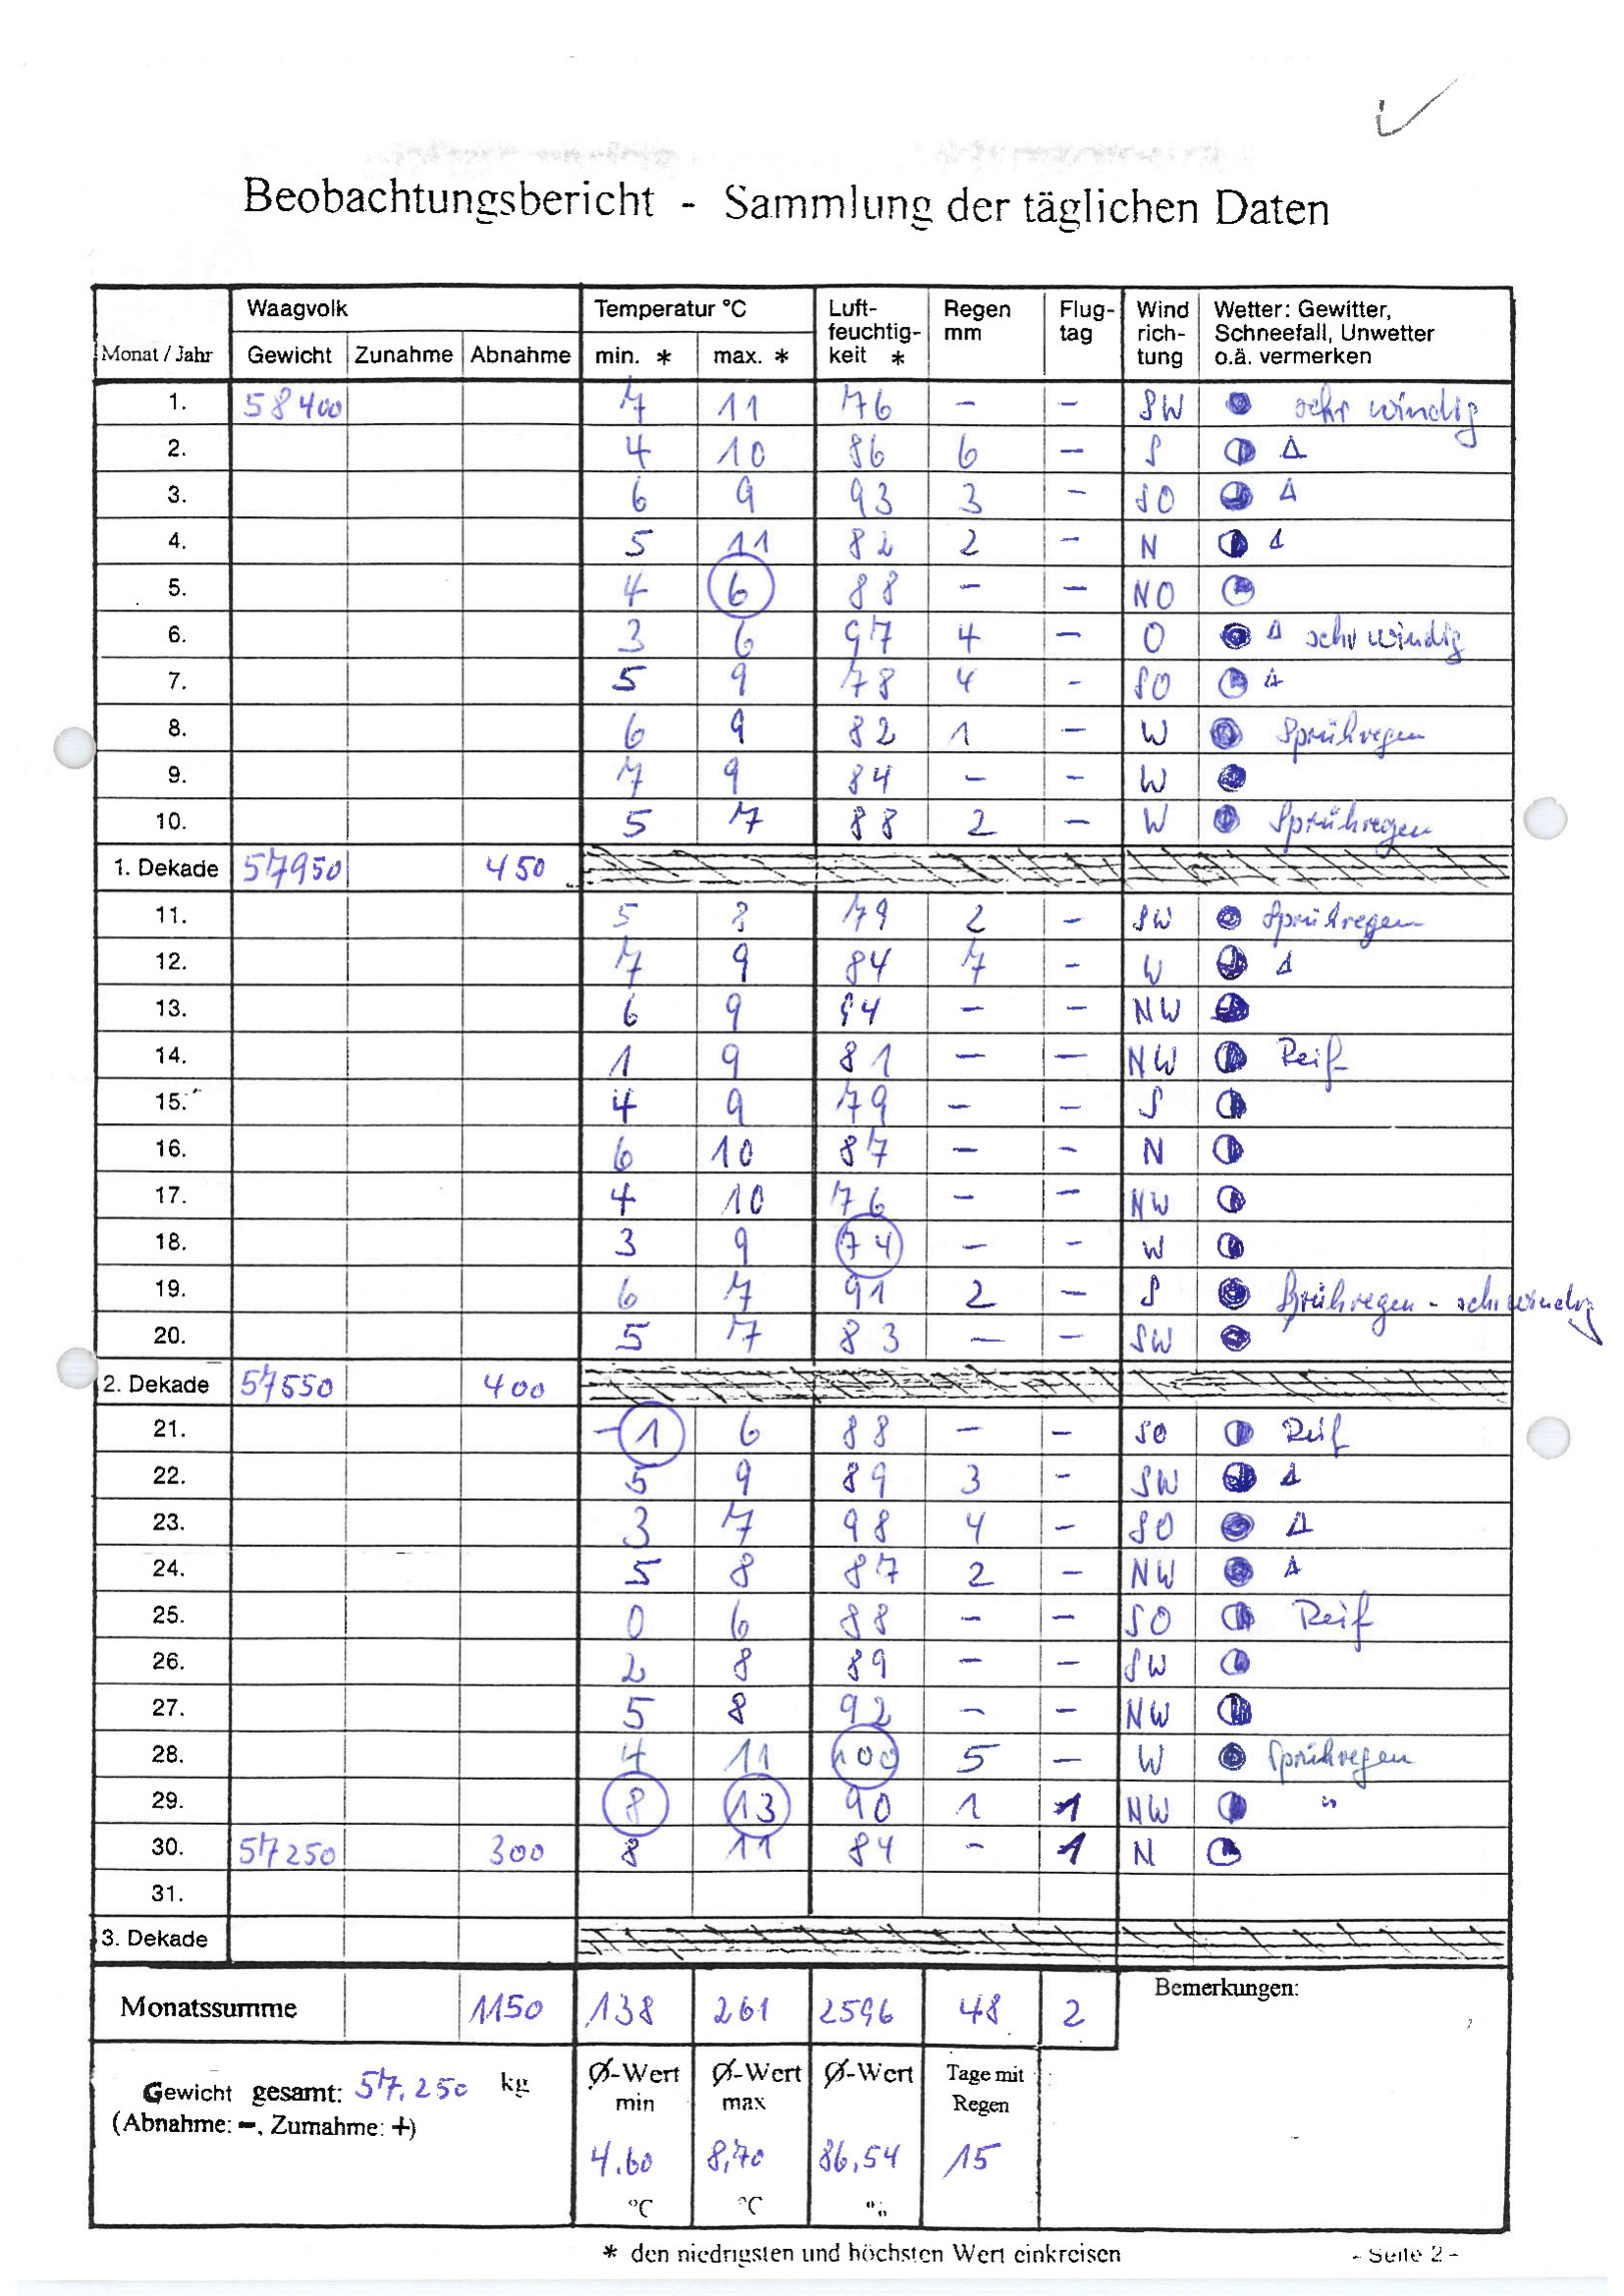 Beobachtungsbericht - Sammlung der täglichen Daten
Monat / Jahr Waagvolk Temperatur °C Luft-feuchtig-keit * Regen mm Flug-tag Wind rich-tung Wetter: Gewitter, Schneefall, Unwetter o.ä. vermerken
Gewicht Zunahme Abnahme min. * max. *
1. 58400 7 11 76 – – SW sehr windig
2. 4 10 86 6 – S Δ
3. 6 9 93 3 – SO Δ
4. 5 11 82 2 – N Δ
5. 4 6 88 – – NO
6. 3 6 97 4 – O Δ sehr windig
7. 5 9 78 4 – SO Δ
8. 6 9 82 1 – W Sprühregen
9. 7 9 84 – – W
10. 5 7 88 2 – W Sprühregen
1. Dekade 57950 450
11. 5 8 79 2 – SW Sprühregen
12. 7 9 84 7 – W Δ
13. 6 9 94 – – NW
14. 1 9 81 – – NW Reif
15. 4 9 79 – – S
16. 6 10 87 – – N
17. 4 10 76 – – NW
18. 3 9 74 – – W
19. 6 7 91 2 – S Sprühregen - sehr windig
20. 5 7 83 – – SW
2. Dekade 57550 400
21. -1 6 88 – – SO Reif
22. 5 9 89 3 – SW Δ
23. 3 7 98 4 – SO Δ
24. 5 8 87 2 – NW Δ
25. 0 6 88 – – SO Reif
26. 2 8 89 – – SW
27. 5 8 92 – – NW
28. 4 11 100 5 – W Sprühregen
29. 8 13 90 1 1 NW "
30. 57250 300 8 11 84 – 1 N
31.
3. Dekade
Monatssumme 1150 138 261 2596 48 2 Bemerkungen:
Gewicht gesamt: 57.250 kg
(Abnahme: -, Zumahme: +)
Ø-Wert min Ø-Wert max Ø-Wert Tage mit Regen
4.60 8,70 86,54 15
°C °C %
* den niedrigsten und höchsten Wert einkreisen
- Seite 2 -